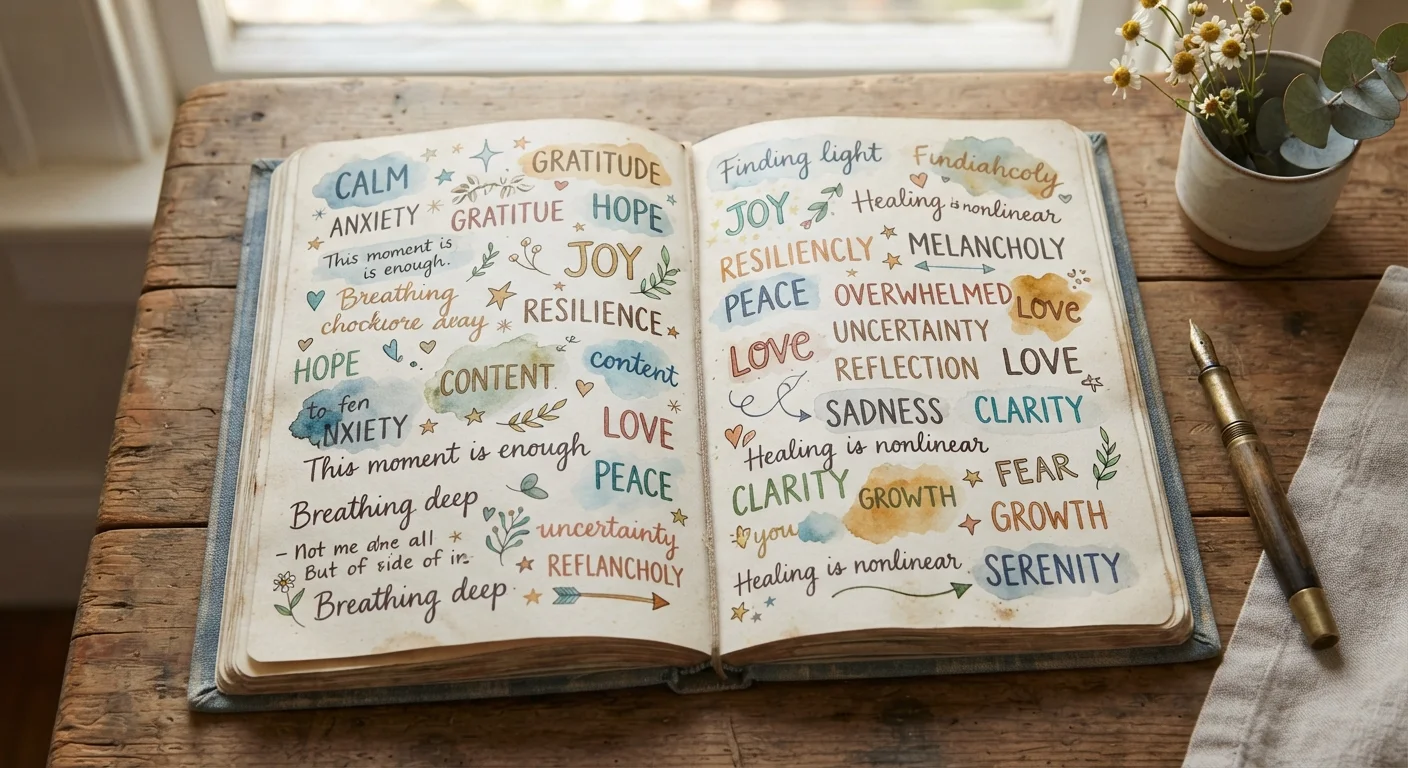 CALM
GRATITUDE
ANXIETY
GRATITUE
HOPE
This moment is
is enough.
JOY
Breathing
chockiore away
RESILIENCE
HOPE
CONTENT
content
to fen
NXIETY
LOVE
This moment is enough
PEACE
Breathing deep
uncertainty
– Not me alne all
But of side of in-
REFLANCHOLY
Breathing deep
Finding light
Findiahcoly
JOY
Healing is nonlinear
RESILIENCLY
MELANCHOLY
PEACE
OVERWHELMED
LOVE
UNCERTAINTY
LOVE
REFLECTION
LOVE
SADNESS
CLARITY
Healing is nonlinear
CLARITY
GROWTH
FEAR
GROWTH
you
Healing is nonlinear
SERENITY